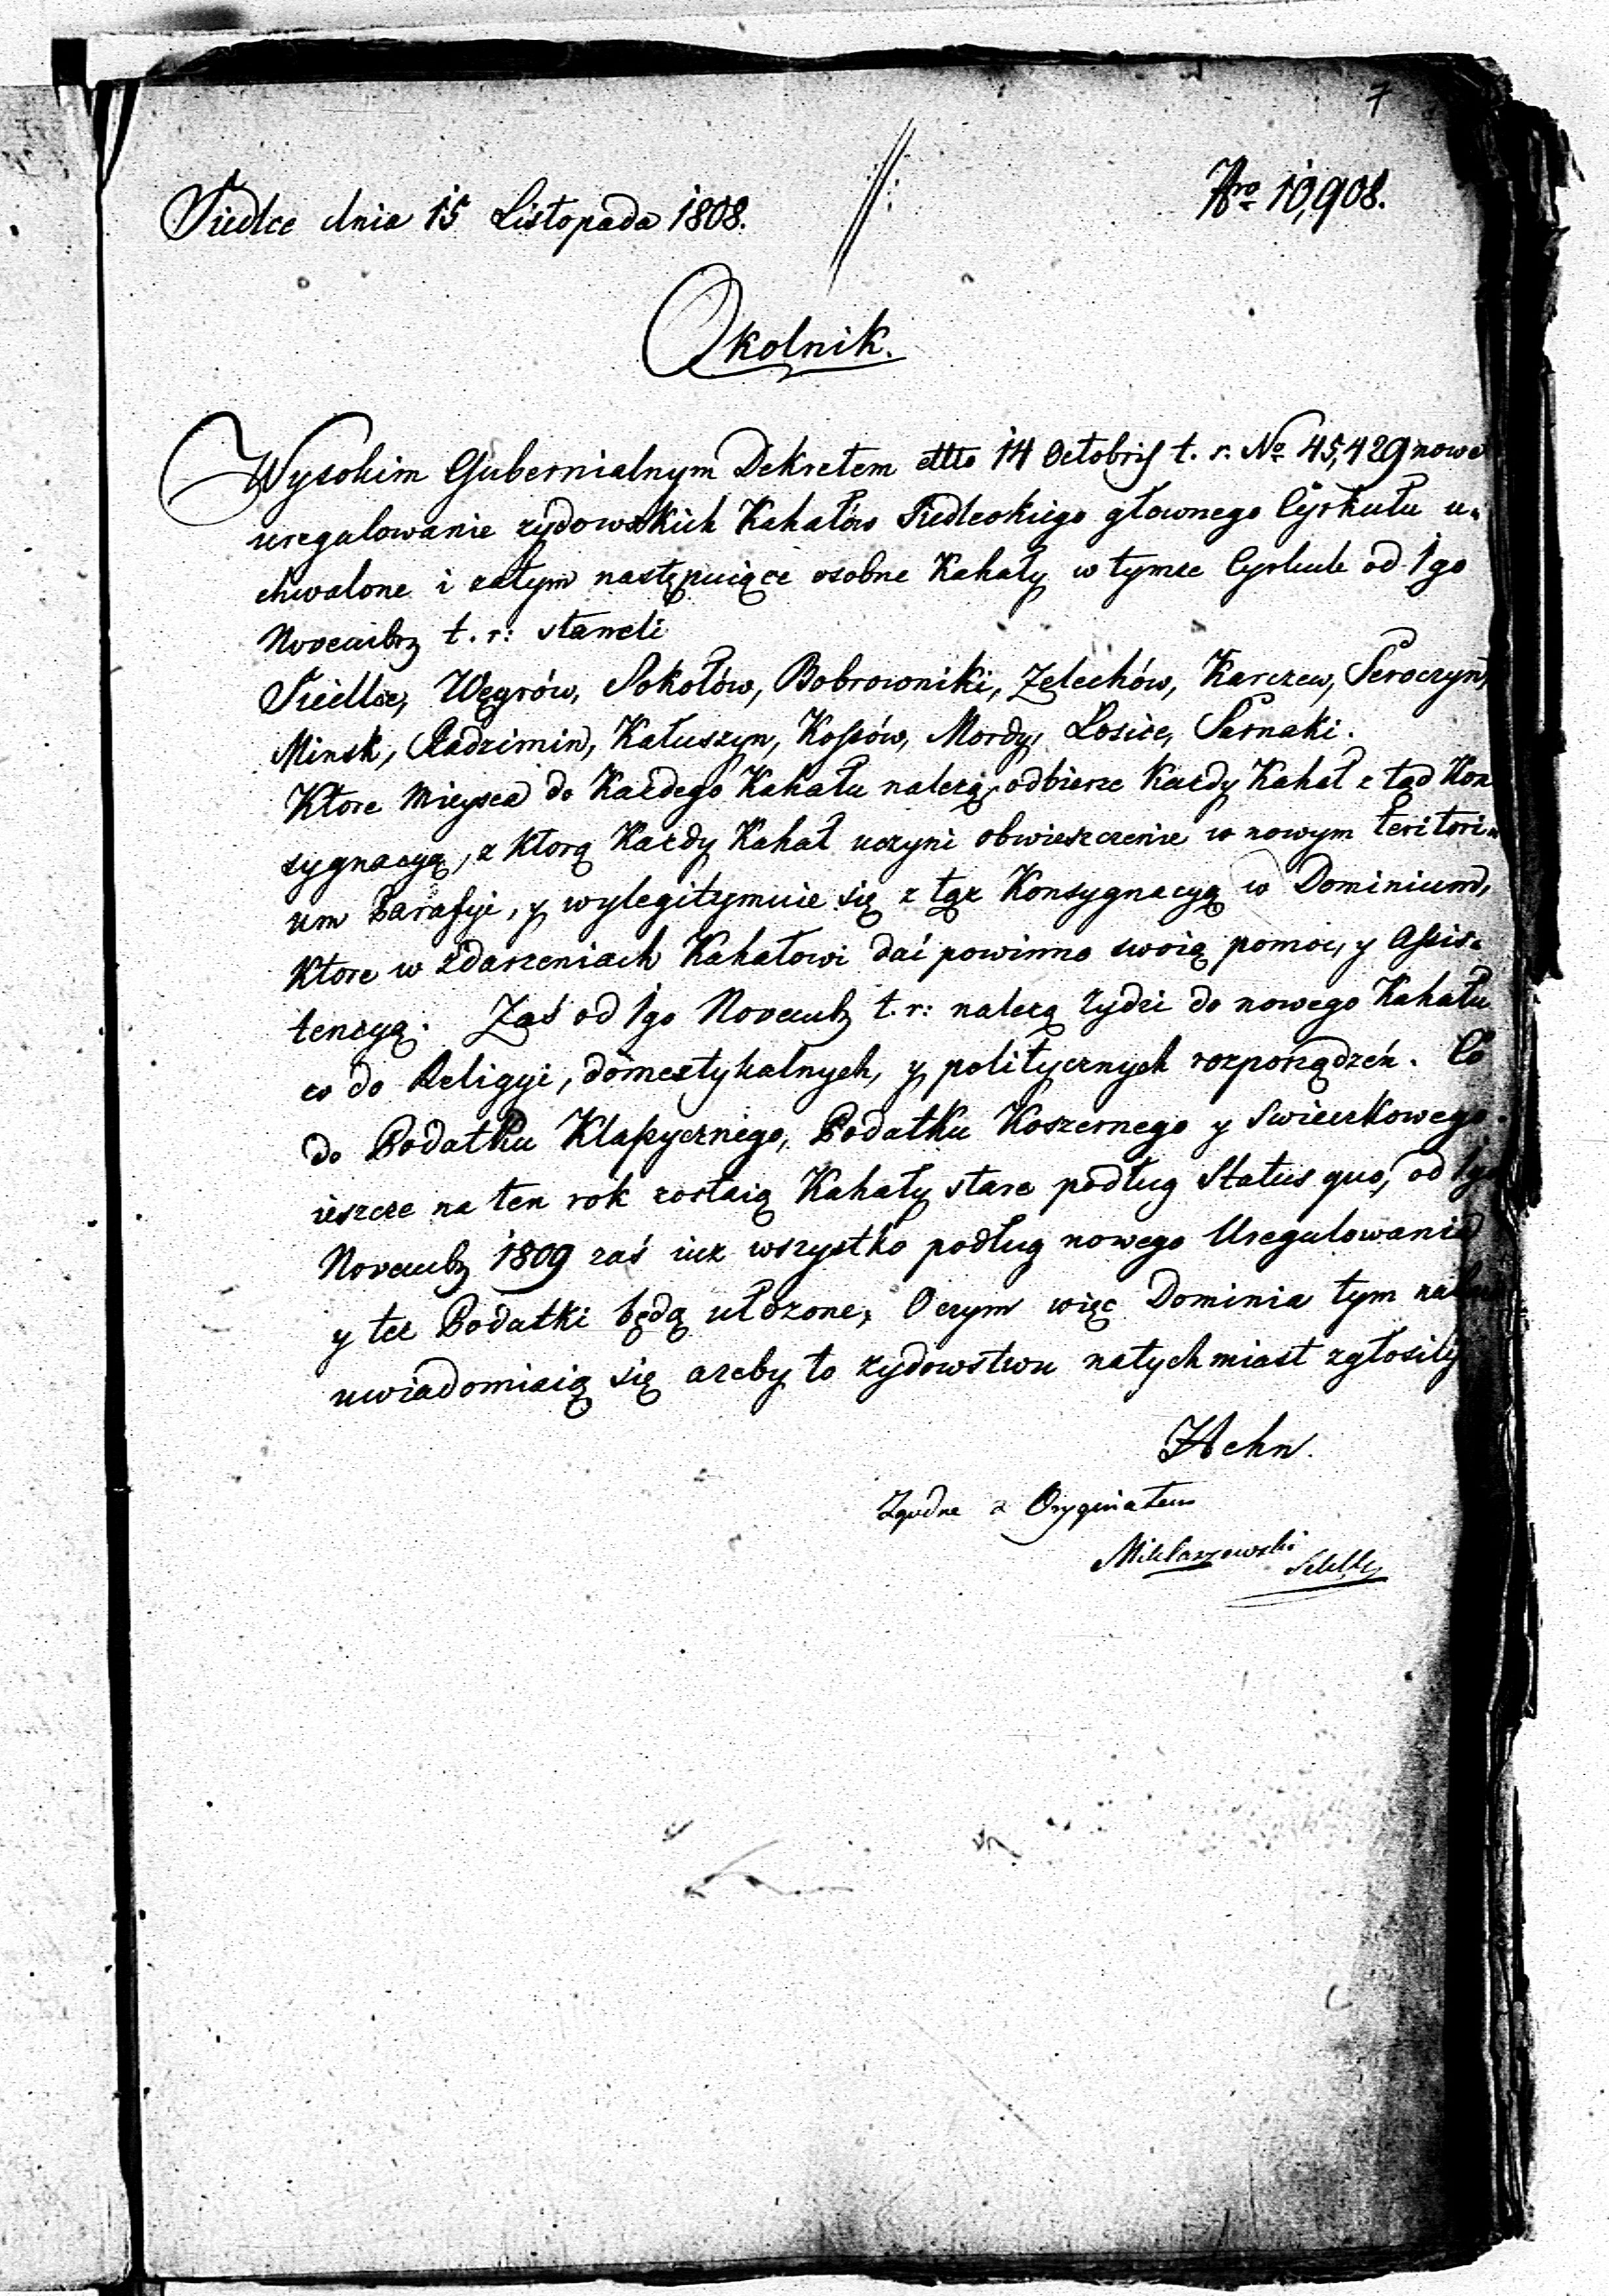 7
Siedlce dnia 15 Listopada 1808.
Nro 10,908.
Okolnik.
Wysokim Gubernialnym Dekretem dtto 14 Octobris t. r. No 45,429 nowe
uregulowanie zydowskich Kahałów Siedleckiego głownego Cyrkułu u=
chwalone i zatym następuiące osobne Kahały w tymze Cyrkule od 1go
Novembrz t. r: staneli
Siedlce, Węgrów, Sokołów, Bobrowniki, Zelechów, Karczew, Seroczyn,
Minsk, Radzimin, Kałuszyn, Kossów, Mordy, Losice, Sarnaki.
Ktore Mieysca do Każdego Kahału naleza, odbierze Kazdy Kahał z tąd Kon
sygnacyą, z ktorą Kazdy Kahał uczyni obwieszczenie w nowym teritori=
um Parafyi, y wylegitymuie się z tąz Konsygnacyą w Dominium,
Ktore w zdarzeniach Kahałowi dać powinno swoią pomoc, y Assis=
tencyą. Zaś od 1go Novembrz t. r: nalezą Zydzi do nowego Kahału
co do Religyi, domestykalnych, y politycznych rozporządzeń. Co
do Podatku Klassycznego, Podatku Koszernego y Swieczkowego
ieszcze na ten rok zostaią Kahały stare podług Status quo, od 1go
Novembrz 1809 zaś iuz wszystko podług nowego Uregulowania
y tez Podatki będą ułozone, O czym więc Dominia tym
uwiadomiaią się azeby to zydowstwu natychmiast zgłosiły
Hehn.
Zgodne z Oryginałem
Miklaszewski